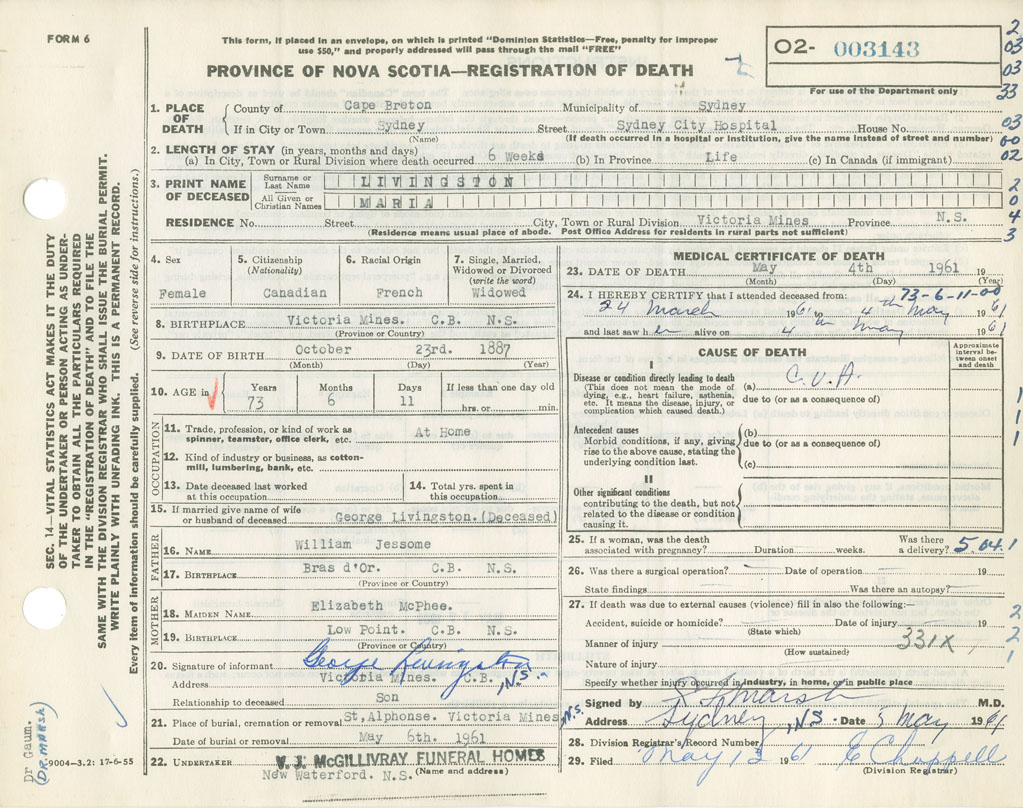 FORM 6
This form, if placed in an envelope, on which is printed "Dominion Statistics—Free, penalty for improper
use $50," and properly addressed will pass through the mail "FREE"
PROVINCE OF NOVA SCOTIA—REGISTRATION OF DEATH
02- 003143
For use of the Department only
2
03
03
33
03
00
02
2
0
4
3
1. PLACE OF DEATH
County of Cape Breton Municipality of Sydney
If in City or Town Sydney Street Sydney City Hospital House No.
(Name) (If death occurred in a hospital or institution, give the name instead of street and number)
2. LENGTH OF STAY (in years, months and days)
(a) In City, Town or Rural Division where death occurred 6 Weeks (b) In Province Life (c) In Canada (if immigrant)
3. PRINT NAME OF DECEASED
Surname or Last Name LIVINGSTON
All Given or Christian Names MARIA
RESIDENCE No. Street City, Town or Rural Division Victoria Mines Province N.S.
(Residence means usual place of abode. Post Office Address for residents in rural parts not sufficient)
4. Sex
Female
5. Citizenship
(Nationality)
Canadian
6. Racial Origin
French
7. Single, Married,
Widowed or Divorced
(write the word)
Widowed
8. BIRTHPLACE Victoria Mines. C.B. N.S.
(Province or Country)
9. DATE OF BIRTH October 23rd. 1887
(Month) (Day) (Year)
10. AGE in
Years Months Days If less than one day old
73 6 11 hrs. or min.
OCCUPATION
11. Trade, profession, or kind of work as At Home
spinner, teamster, office clerk, etc.
12. Kind of industry or business, as cotton-
mill, lumbering, bank, etc.
13. Date deceased last worked
at this occupation
14. Total yrs. spent in
this occupation
15. If married give name of wife
or husband of deceased George Livingston.(Deceased)
FATHER
16. NAME William Jessome
17. BIRTHPLACE Bras d'Or. C.B. N.S.
(Province or Country)
MOTHER
18. MAIDEN NAME Elizabeth McPhee.
19. BIRTHPLACE Low Point. C.B. N.S.
(Province or Country)
20. Signature of informant George Livingston
Address Victoria Mines. C.B. ,NS.
Relationship to deceased Son
21. Place of burial, cremation or removal St,Alphonse. Victoria Mines ,N.S.
Date of burial or removal May 6th. 1961
22. UNDERTAKER V. J. McGILLIVRAY FUNERAL HOMES
New Waterford. N.S. (Name and address)
MEDICAL CERTIFICATE OF DEATH
23. DATE OF DEATH May 4th 1961 19
(Month) (Day) (Year)
73-6-11-00
24. I HEREBY CERTIFY that I attended deceased from:
24 March 1961 to 4th May 1961
and last saw her alive on 4th May 1961
CAUSE OF DEATH
Approximate interval be-
tween onset
and death
I
Disease or condition directly leading to death (a) C.V.A.
(This does not mean the mode of
dying, e.g., heart failure, asthenia,
etc. It means the disease, injury, or
complication which caused death.)
due to (or as a consequence of)
Antecedent causes
Morbid conditions, if any, giving
rise to the above cause, stating the
underlying condition last.
(b)
due to (or as a consequence of)
(c)
II
Other significant conditions
contributing to the death, but not
related to the disease or condition
causing it.
1
1
1
25. If a woman, was the death
associated with pregnancy? Duration weeks.
Was there
a delivery? 5.04.1
26. Was there a surgical operation? Date of operation 19
State findings Was there an autopsy?
27. If death was due to external causes (violence) fill in also the following:—
Accident, suicide or homicide? Date of injury 19
(State which)
Manner of injury 331X
(How sustained)
Nature of injury
2
2
1
Specify whether injury occurred in industry, in home, or in public place
Signed by Marsh M.D.
Address Sydney, NS Date 5 May 1961
28. Division Registrar's Record Number
29. Filed May 13 1961 E Chappell
(Division Registrar)
SEC. 14—VITAL STATISTICS ACT MAKES IT THE DUTY
OF THE UNDERTAKER OR PERSON ACTING AS UNDER-
TAKER TO OBTAIN ALL THE PARTICULARS REQUIRED
IN THE "REGISTRATION OF DEATH" AND TO FILE THE
SAME WITH THE DIVISION REGISTRAR WHO SHALL ISSUE THE BURIAL PERMIT.
WRITE PLAINLY WITH UNFADING INK. THIS IS A PERMANENT RECORD.
Every item of information should be carefully supplied. (See reverse side for instructions.)
Dr Gaum.
(DR. MARSH)
9004—3.2: 17-6-55